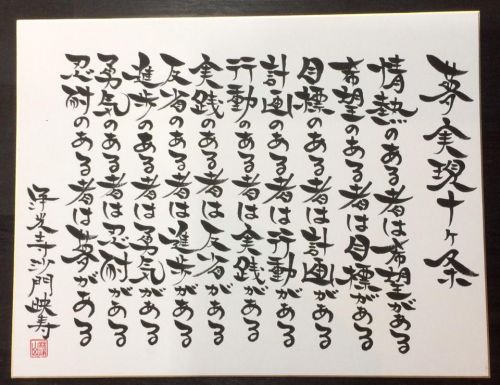 夢実現十ヶ条
情熱のある者は希望がある
希望のある者は目標がある
目標のある者は計画がある
計画のある者は行動がある
行動のある者は実践がある
実践のある者は反省がある
反省のある者は進歩がある
進歩のある者は勇気がある
勇気のある者は忍耐がある
忍耐のある者は夢がある
寺沙門映寿